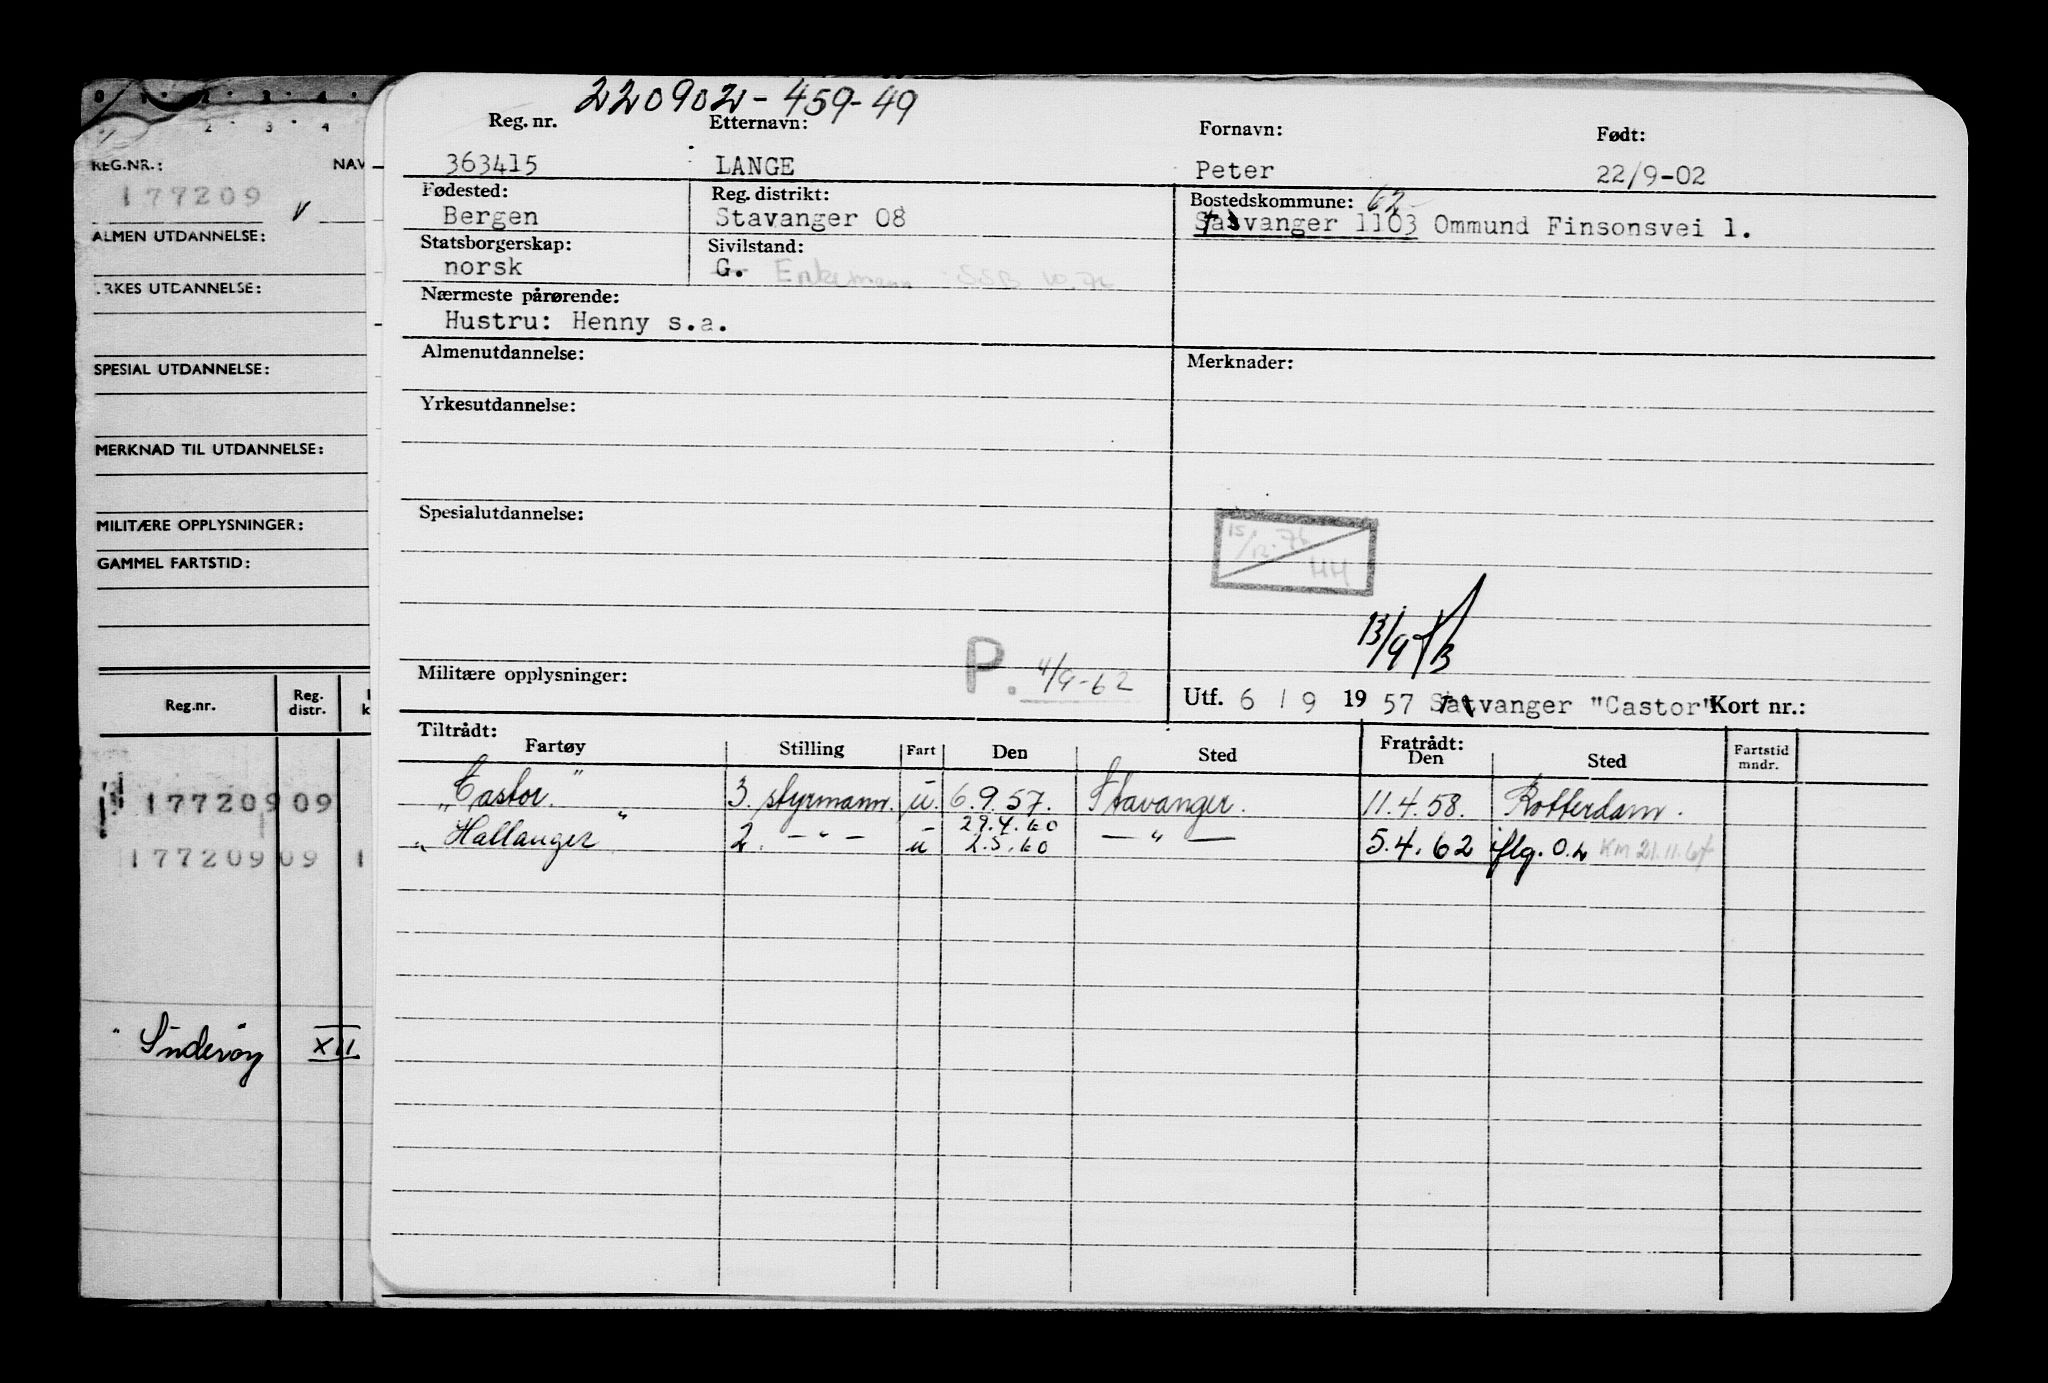 220902-459-49
Reg. nr. Etternavn: Fornavn: Født:
363415 LANGE Peter 22/9-02
Fødested: Reg. distrikt: Bostedskommune: 62
Bergen Stavanger 08 Stavanger 1103 Ommund Finsonsvei 1.
Statsborgerskap: Sivilstand:
norsk G. Enkemann SSB 10.76
Nærmeste pårørende:
Hustru: Henny s.a.
Almenutdannelse: Merknader:
Yrkesutdannelse:
Spesialutdannelse:
15/12.76 HH
13/9
Militære opplysninger: P. 4/9-62
Utf. 6 / 9 1957 Stavanger "Castor" Kort nr.:
Tiltrådt: Fratrådt:
Fartøy Stilling Fart Den Sted Den Sted Fartstid mndr.
"Castor" 3. styrmann. u. 6.9.57. Stavanger. 11.4.58. Rotterdam.
29.4.60
"Hallanger" 2. — " — u 2.5.60 — " — 5.4.62 iflg. O.L KM 21.11.67
0 1 2 3 4
2 3 4
REG.NR.: NAV
177209 v
ALMEN UTDANNELSE:
YRKES UTDANNELSE:
SPESIAL UTDANNELSE:
MERKNAD TIL UTDANNELSE:
MILITÆRE OPPLYSNINGER:
GAMMEL FARTSTID:
Reg.nr. Reg. distr. k
177209 09
177209 09 1
"Sinderøy XII